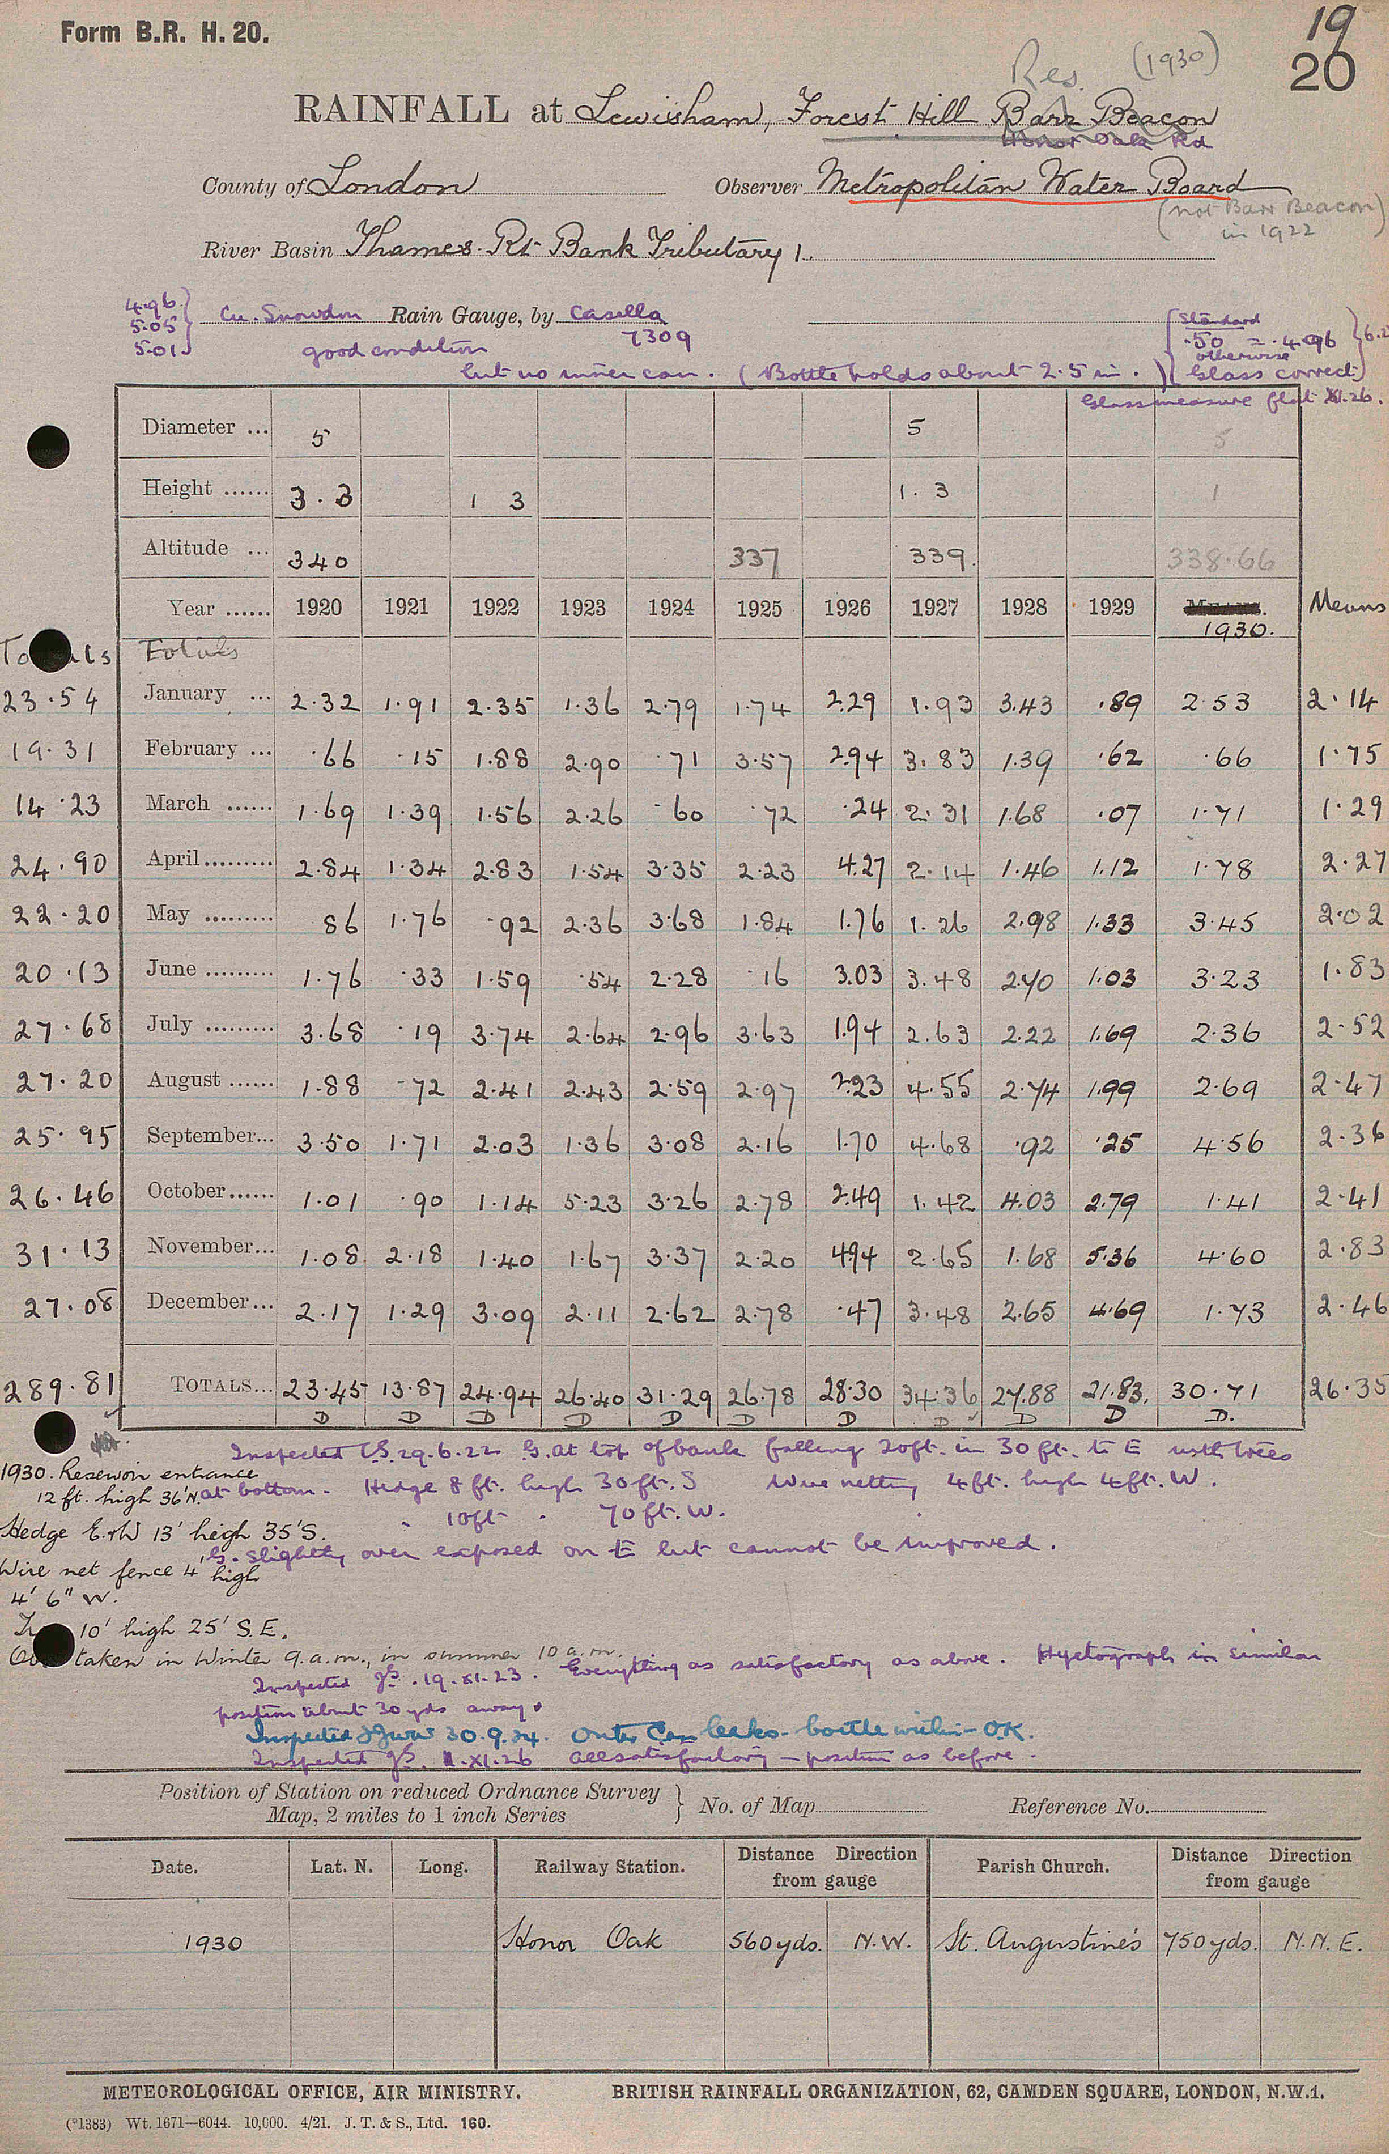 Form B.R. H. 20.
19
20
Res. (1930)
RAINFALL at Lewisham, Forest Hill Barr Beacon
Honor Oak Rd
County of London Observer Metropolitan Water Board
(not Barr Beacon)
in 1922
River Basin Thames Rt Bank Tributary 1.
4.96
5.05
5.01
Cu. Snowdon Rain Gauge, by Casella
7309
good condition
but no inner can. (Bottle holds about 2.5 in.)
Standard
.50 = .496
otherwise
Glass correct
Glass measure flat XI.26.
Diameter ... 5 5 5
Height ...... 3.3 1 3 1.3 1
Altitude ... 340 337 339. 338.66
Year ...... 1920 1921 1922 1923 1924 1925 1926 1927 1928 1929 1930. Means
Totals Totals
23.54 January ... 2.32 1.91 2.35 1.36 2.79 1.74 2.29 1.93 3.43 .89 2.53 2.14
19.31 February ... .66 .15 1.88 2.90 .71 3.57 2.94 3.83 1.39 .62 .66 1.75
14.23 March ...... 1.69 1.39 1.56 2.26 .60 .72 .24 2.31 1.68 .07 1.71 1.29
24.90 April ......... 2.84 1.34 2.83 1.54 3.35 2.23 4.27 2.14 1.46 1.12 1.78 2.27
22.20 May ......... 86 1.76 .92 2.36 3.68 1.84 1.76 1.26 2.98 1.33 3.45 2.02
20.13 June ......... 1.76 .33 1.59 .54 2.28 .16 3.03 3.48 2.70 1.03 3.23 1.83
27.68 July ......... 3.68 .19 3.74 2.64 2.96 3.63 1.94 2.63 2.22 1.69 2.36 2.52
27.20 August ...... 1.88 .72 2.41 2.43 2.59 2.97 2.23 4.55 2.74 1.99 2.69 2.47
25.95 September... 3.50 1.71 2.03 1.36 3.08 2.16 1.70 4.68 .92 .25 4.56 2.36
26.46 October...... 1.01 .90 1.14 5.23 3.26 2.78 2.49 1.42 4.03 2.79 1.41 2.41
31.13 November... 1.08 2.18 1.40 1.67 3.37 2.20 4.94 2.65 1.68 5.36 4.60 2.83
27.08 December... 2.17 1.29 3.09 2.11 2.62 2.78 .47 3.48 2.65 4.69 1.73 2.46
289.81 TOTALS... 23.45 13.87 24.94 26.40 31.29 26.78 28.30 34.36 27.88 21.83. 30.71 26.35
D D D D D D D D D D D.
Inspected 29.6.22 G. at top of bank falling 20ft. in 30ft. to E with trees
at bottom. Hedge 8 ft. high 30ft. S Wire netting 4ft. high 4ft. W.
" 10ft " 70ft. W.
G. slightly over exposed on E but cannot be improved.
1930. Reservoir entrance
12 ft. high 36' N.
Hedge E. & W 13' high 35' S.
Wire net fence 4' high
4' 6" W.
10' high 25' S.E.
taken in Winter 9.a.m., in summer 10 a.m.
Inspected 19.XI.23. Everything as satisfactory as above. Hyetograph in similar
position about 30 yds away.
Inspected 30.9.24. Outer Can leaks - bottle within - O.K.
Inspected 11.XI.26 all satisfactory - position as before.
Position of Station on reduced Ordnance Survey
Map, 2 miles to 1 inch Series } No. of Map Reference No.
Date. Lat. N. Long. Railway Station. Distance from gauge Direction Parish Church. Distance from gauge Direction
1930 Honor Oak 560 yds. N.W. St. Augustine's 750 yds. N.N.E.
METEOROLOGICAL OFFICE, AIR MINISTRY. BRITISH RAINFALL ORGANIZATION, 62, CAMDEN SQUARE, LONDON, N.W.1.
(*1383) Wt. 1671—6044. 10,000. 4/21. J. T. & S., Ltd. 160.